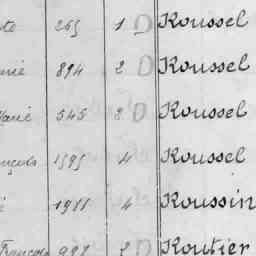 te 265 1 D Roussel
nié 894 2 D Roussel
Marie 545 2 D Roussel
nçois 1595 4 Roussel
1911 4 Roussin
François 2 D Routier